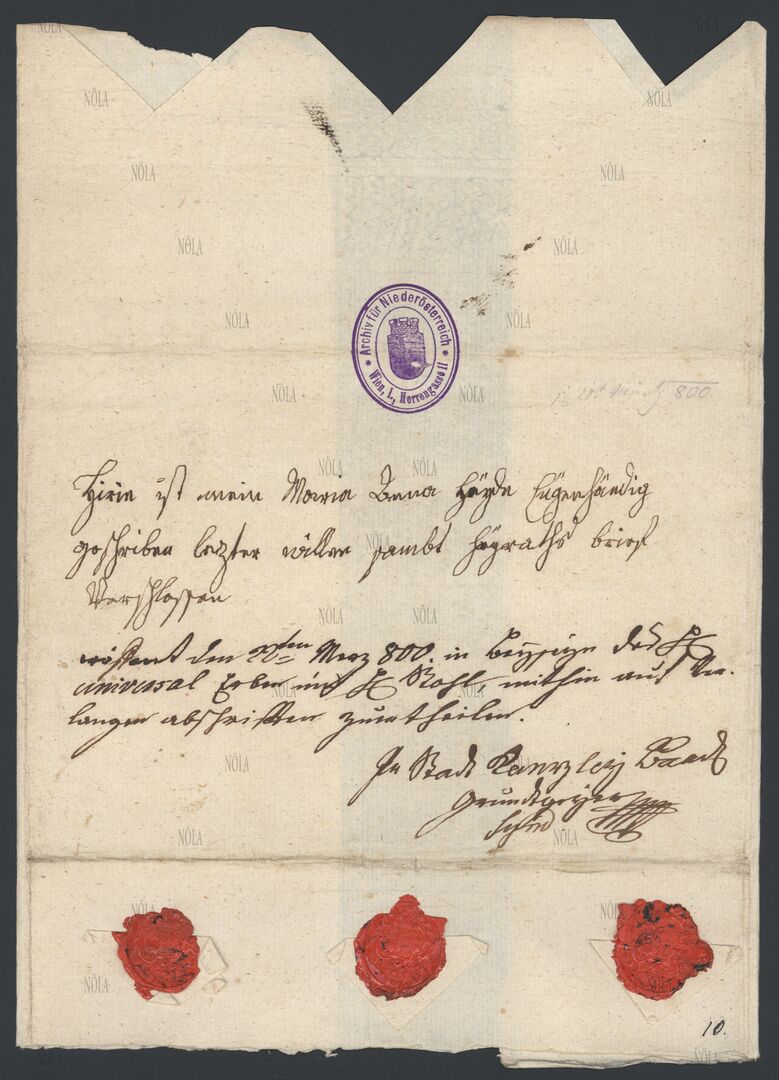 Archiv für Niederösterreich
Wien, I., Herrengasse 11
800
Hirin ist mein Maria Anna Häydn Eügenhändig
geschriben lezter willen sambt heyraths brief
Verschlossen
den 22ten Merz 800 in Beyseyn des H
universal Erben und H Stohl, mithin auf Ver-
langen abschriften zuertheilen.
Stadt Kanzley Baaden
Grundtgeyer
10.
NÖLA